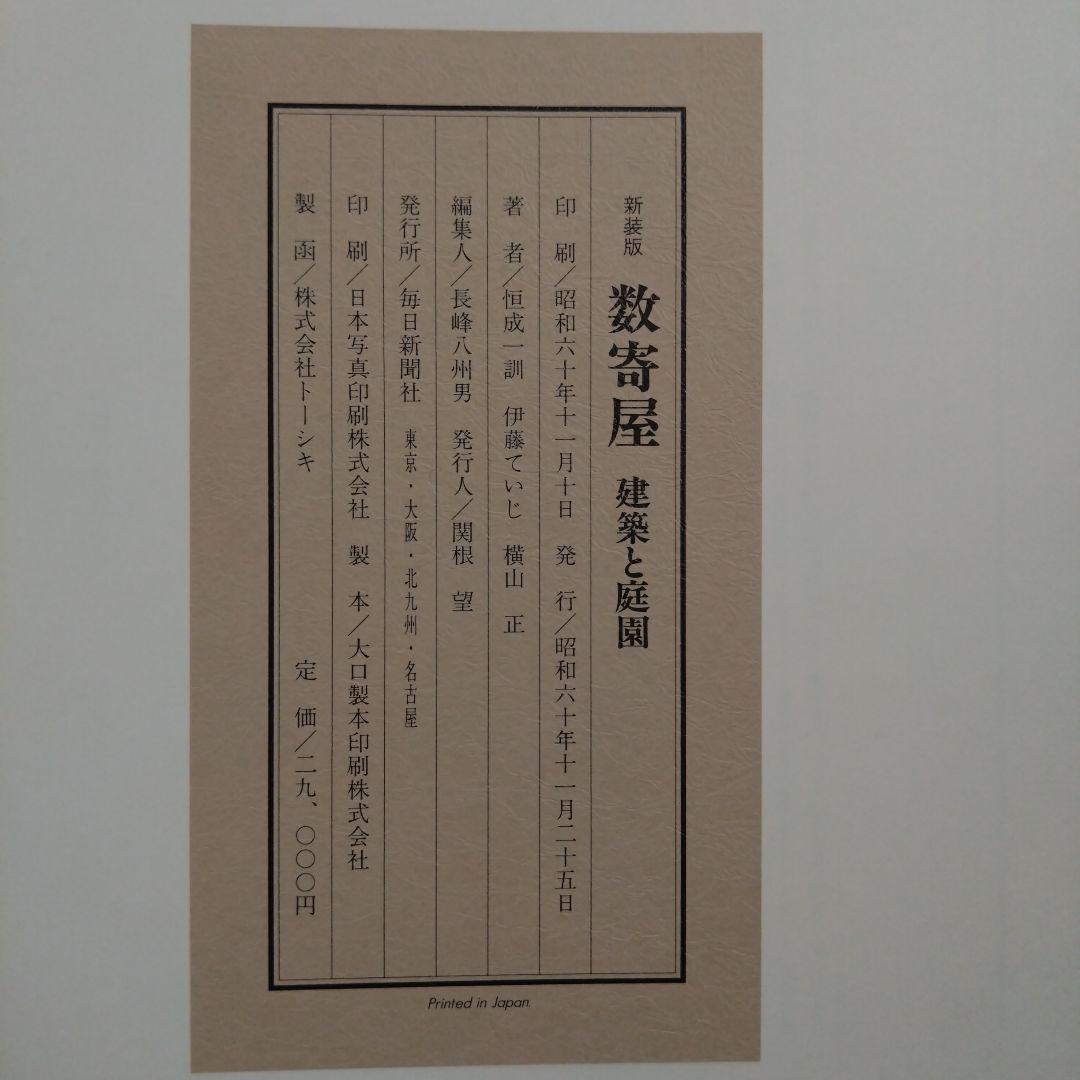 新装版 数寄屋 建築と庭園
印 刷/昭和六十年十一月十日 発 行/昭和六十年十一月二十五日
著 者/恒成一訓 伊藤ていじ 横山 正
編集人/長峰八州男 発行人/関根 望
発行所/毎日新聞社 東京・大阪・北九州・名古屋
印 刷/日本写真印刷株式会社 製 本/大口製本印刷株式会社
製 函/株式会社トーシキ 定 価/二九、〇〇〇円
Printed in Japan.